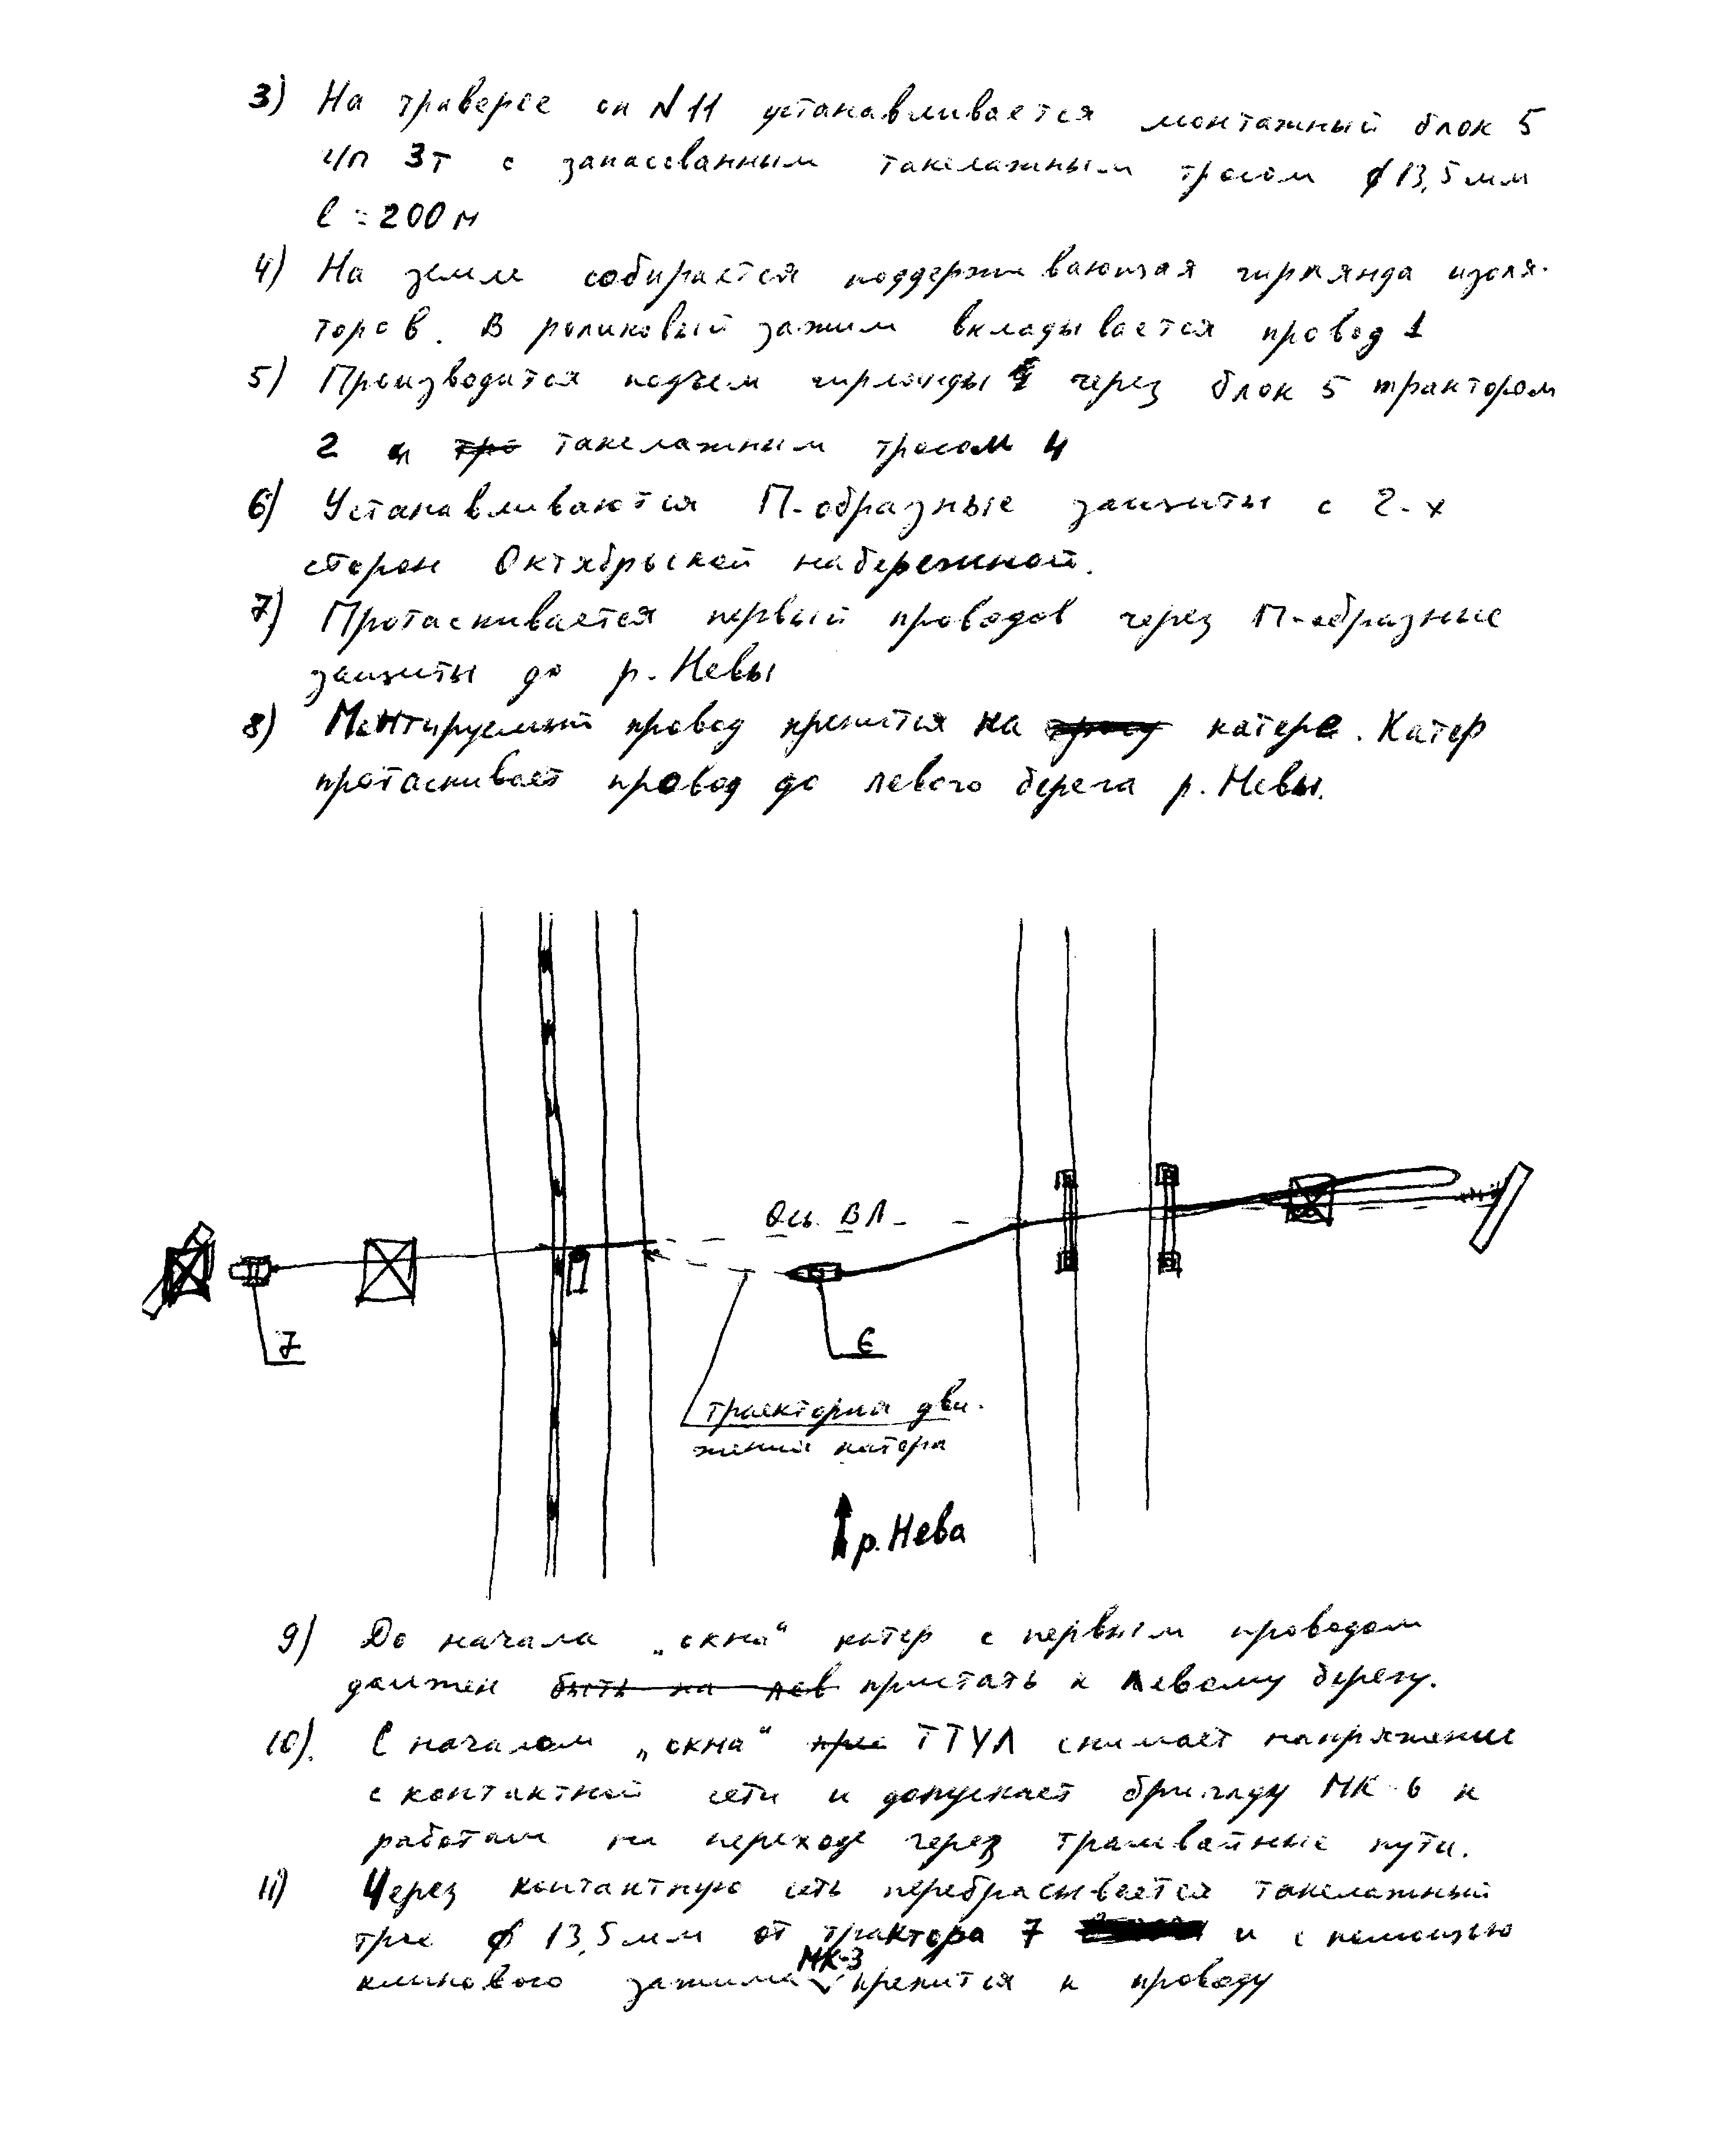 3) На траверсе оп N 11 устанавливается монтажный блок 5
г/п 3т с запасованным такелажным тросом ϕ 13,5 мм
l = 200 м
4) На земле собирается поддерживающая гирлянда изоля-
торов. В роликовый зажим вкладывается провод 1
5) Производится подъем гирлянды через блок 5 трактором
2 и такелажным тросом 4
6) Устанавливаются П-образные защиты с 2-х
сторон Октябрьской набережной.
7) Протаскивается первый проводов через П-образные
защиты до р. Невы
8) Монтируемый провод крепится на катере. Катер
протаскивает провод до левого берега р. Невы.
Ось ВЛ
7
6
траектория дви-
жения катера
р. Нева
9) До начала „окна“ катер с первым проводом
должен быть на лев пристать к левому берегу.
10). С началом „окна“ ТТУЛ снимает напряжение
с контактной сети и допускает бригаду МК-6 к
работам на переходе через трамвайные пути.
11) Через контактную сеть перебрасывается такелажный
трос ϕ 13,5 мм от трактора 7 и с помощью
МК-3
клинового зажима крепится к проводу